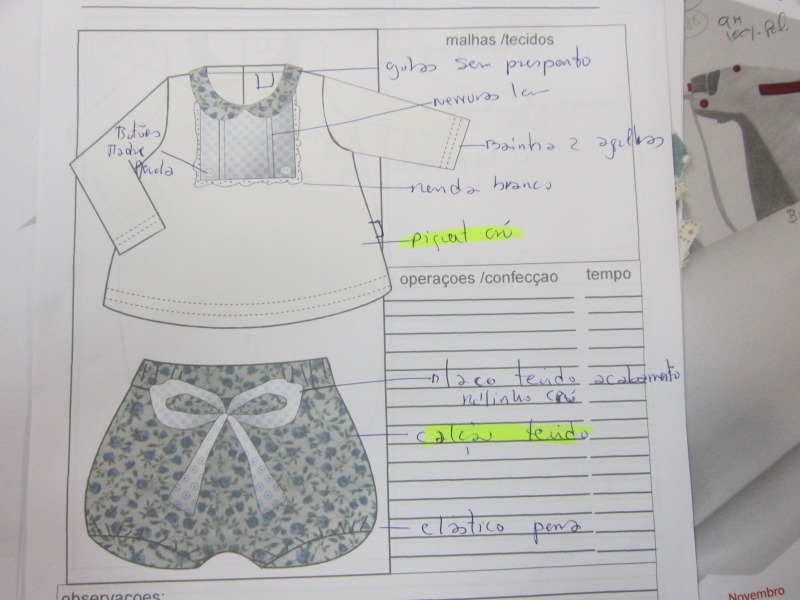 malhas /tecidos
golas sem pesponto
nervuras 1 cm
Botões
Madre
Perola
Bainha 2 agulhas
renda branca
piquet crú
operaçoes /confecçao tempo
laço tecido acabamento
crú
calção tecido
elástico perna
observaçoes:
Novembro